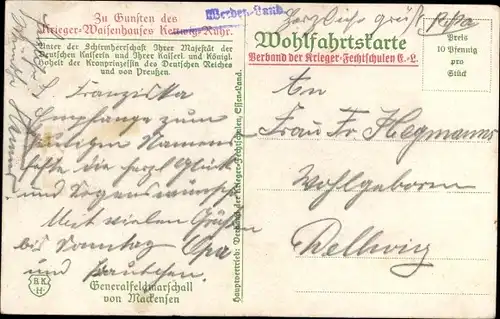 Zu Gunsten des
Krieger-Waisenhauses Kettwig-Ruhr.
Unter der Schirmherrschaft Ihrer Majestät der
Deutschen Kaiserin und Ihrer Kaiserl. und Königl.
Hoheit der Kronprinzessin des Deutschen Reiches
und von Preußen.
Werden-Land
Herzliche Grüße Papa
Wohlfahrtskarte
Verband der Krieger-Fechtschulen E.-L.
Preis
10 Pfennig
pro
Stück
L. Franziska
Empfange zum
heiligen Namens
feste die herzl. Glück
und Segenswünsche
Mit vielen Grüßen
bis Sonntag Opa
und
Generalfeldmarschall
von Mackensen
B.K.
H.
Hauptvertrieb: Verband der Krieger-Fechtschulen, Essen-Land.
An
Frau Fr. Hegmanns
Wohlgeboren
Dellwig